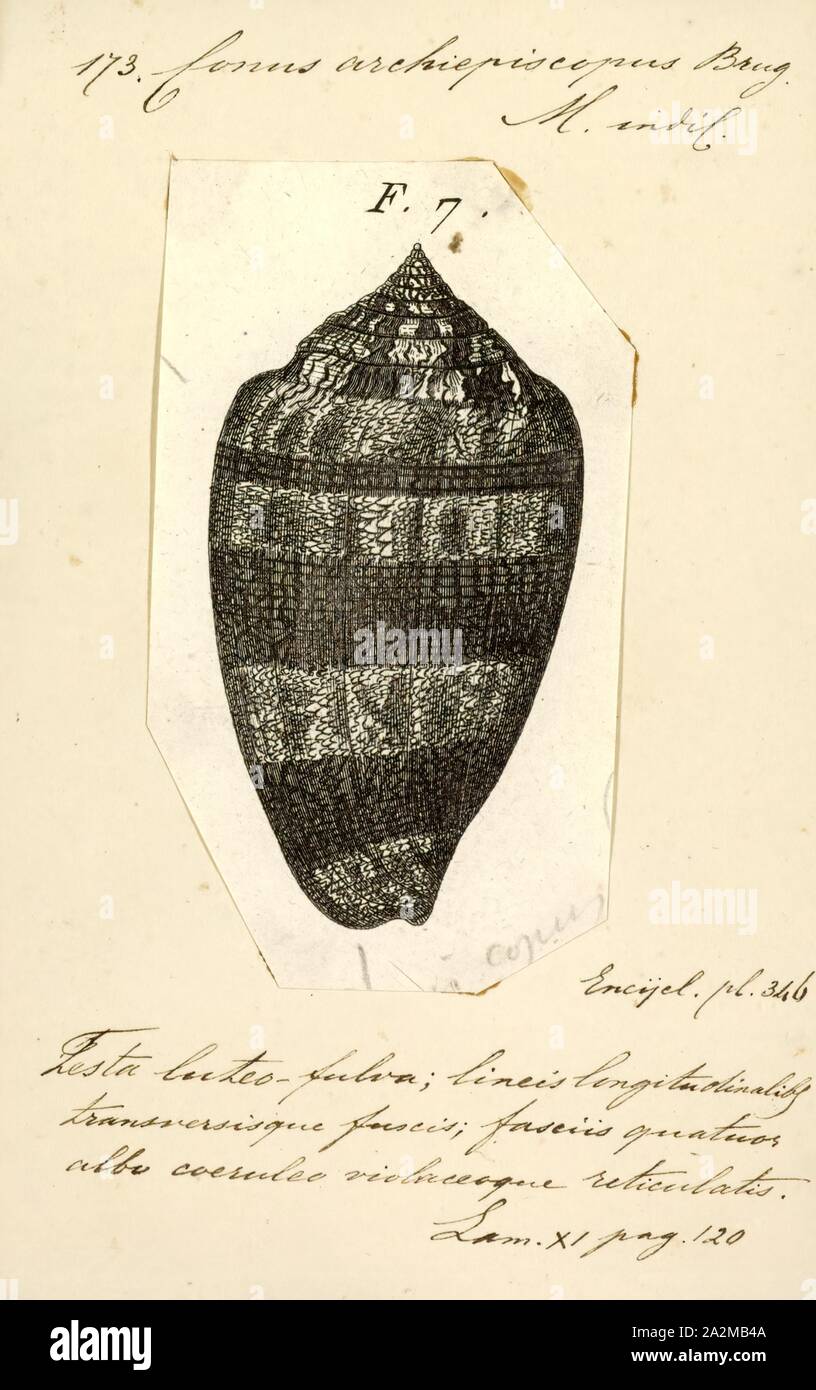 173. Conus archiepiscopus Brug.
M. indic.
F. 7.
copus
Encijcl. pl. 346
Testa luteo-fulva; lineis longitudinalibs
transversisque fuscis; fasciis quatuor
albo coeruleo violaceoque reticulatis.
Lam. XI pag. 120
alamy
alamy
alamy
a
a
alamy
Image ID: 2A2MB4A
www.alamy.com